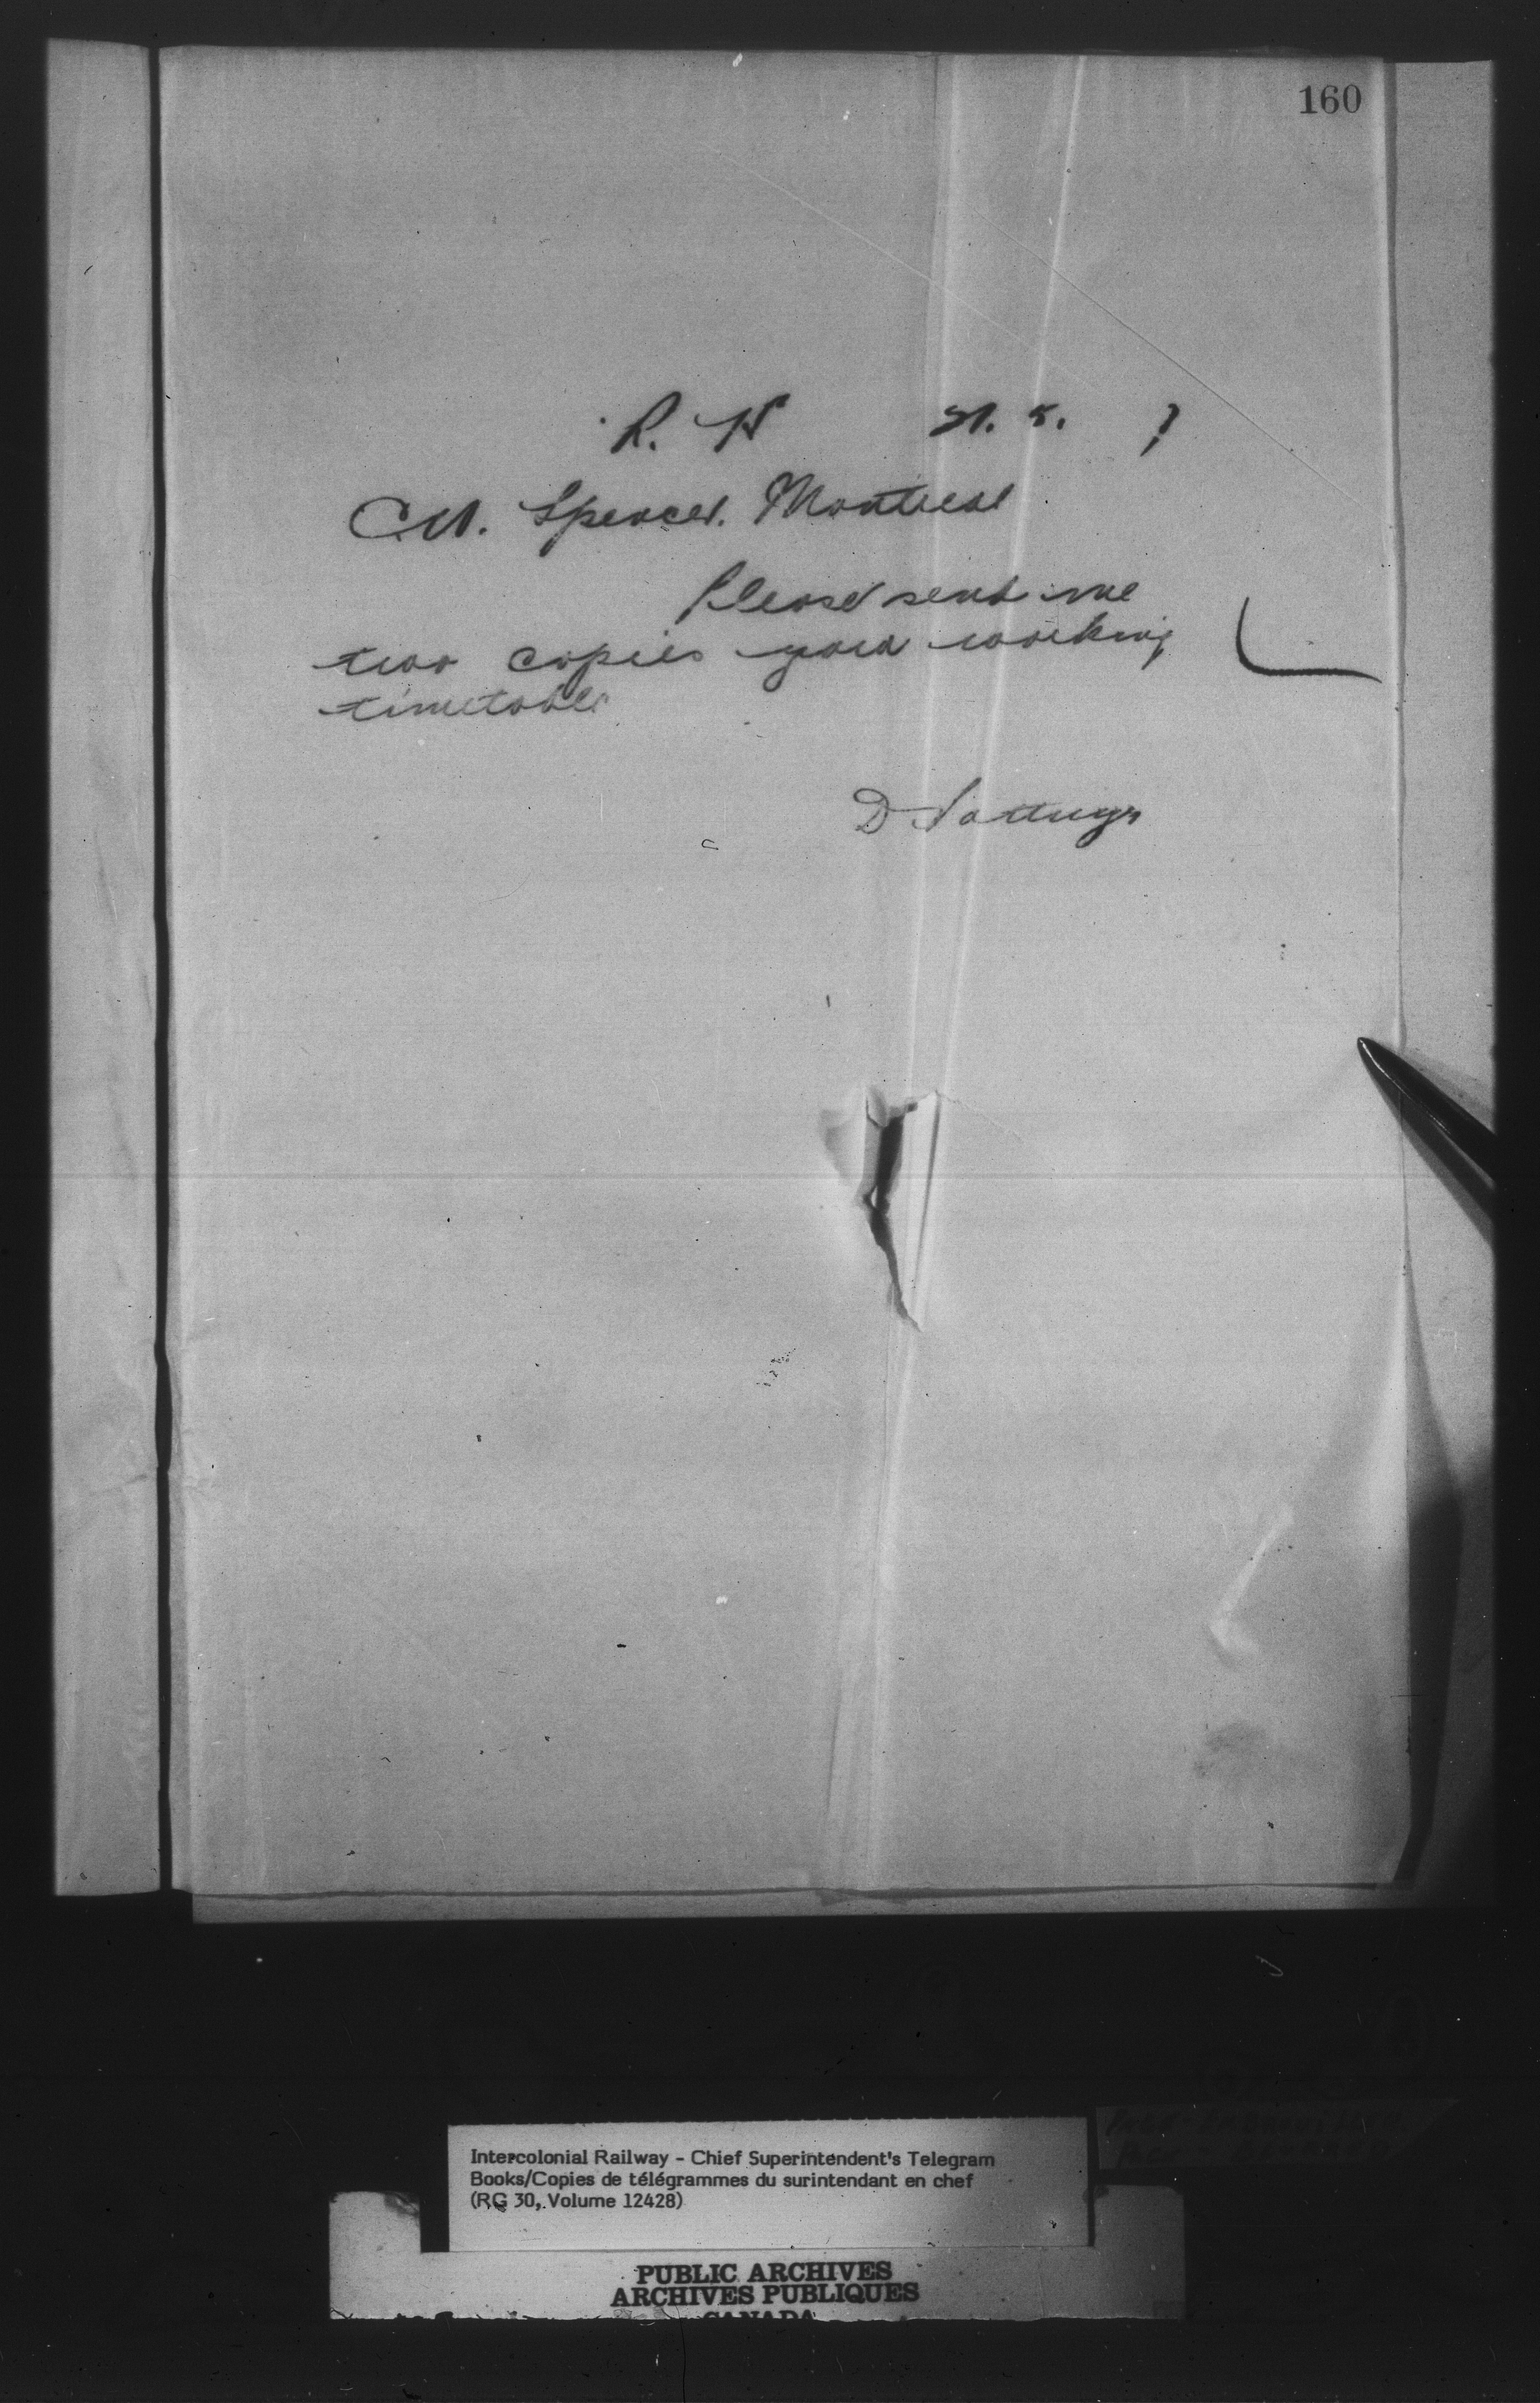 160
R. H
C.W. Spencer. Montreal
Please send me
two copies your working
timetable
D Pottinger
Intercolonial Railway - Chief Superintendent's Telegram
Books/Copies de télégrammes du surintendant en chef
(RG 30, Volume 12428)
PUBLIC ARCHIVES
ARCHIVES PUBLIQUES
CANADA